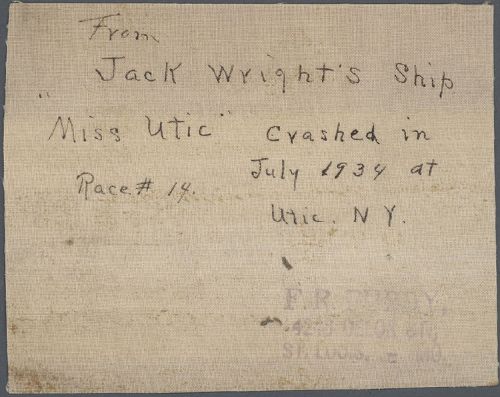 From
Jack Wright's Ship
"Miss Utic" Crashed in
July 1934 at
Race # 14.
Utic. N Y.
F. R.
ST. LOUIS, MO.